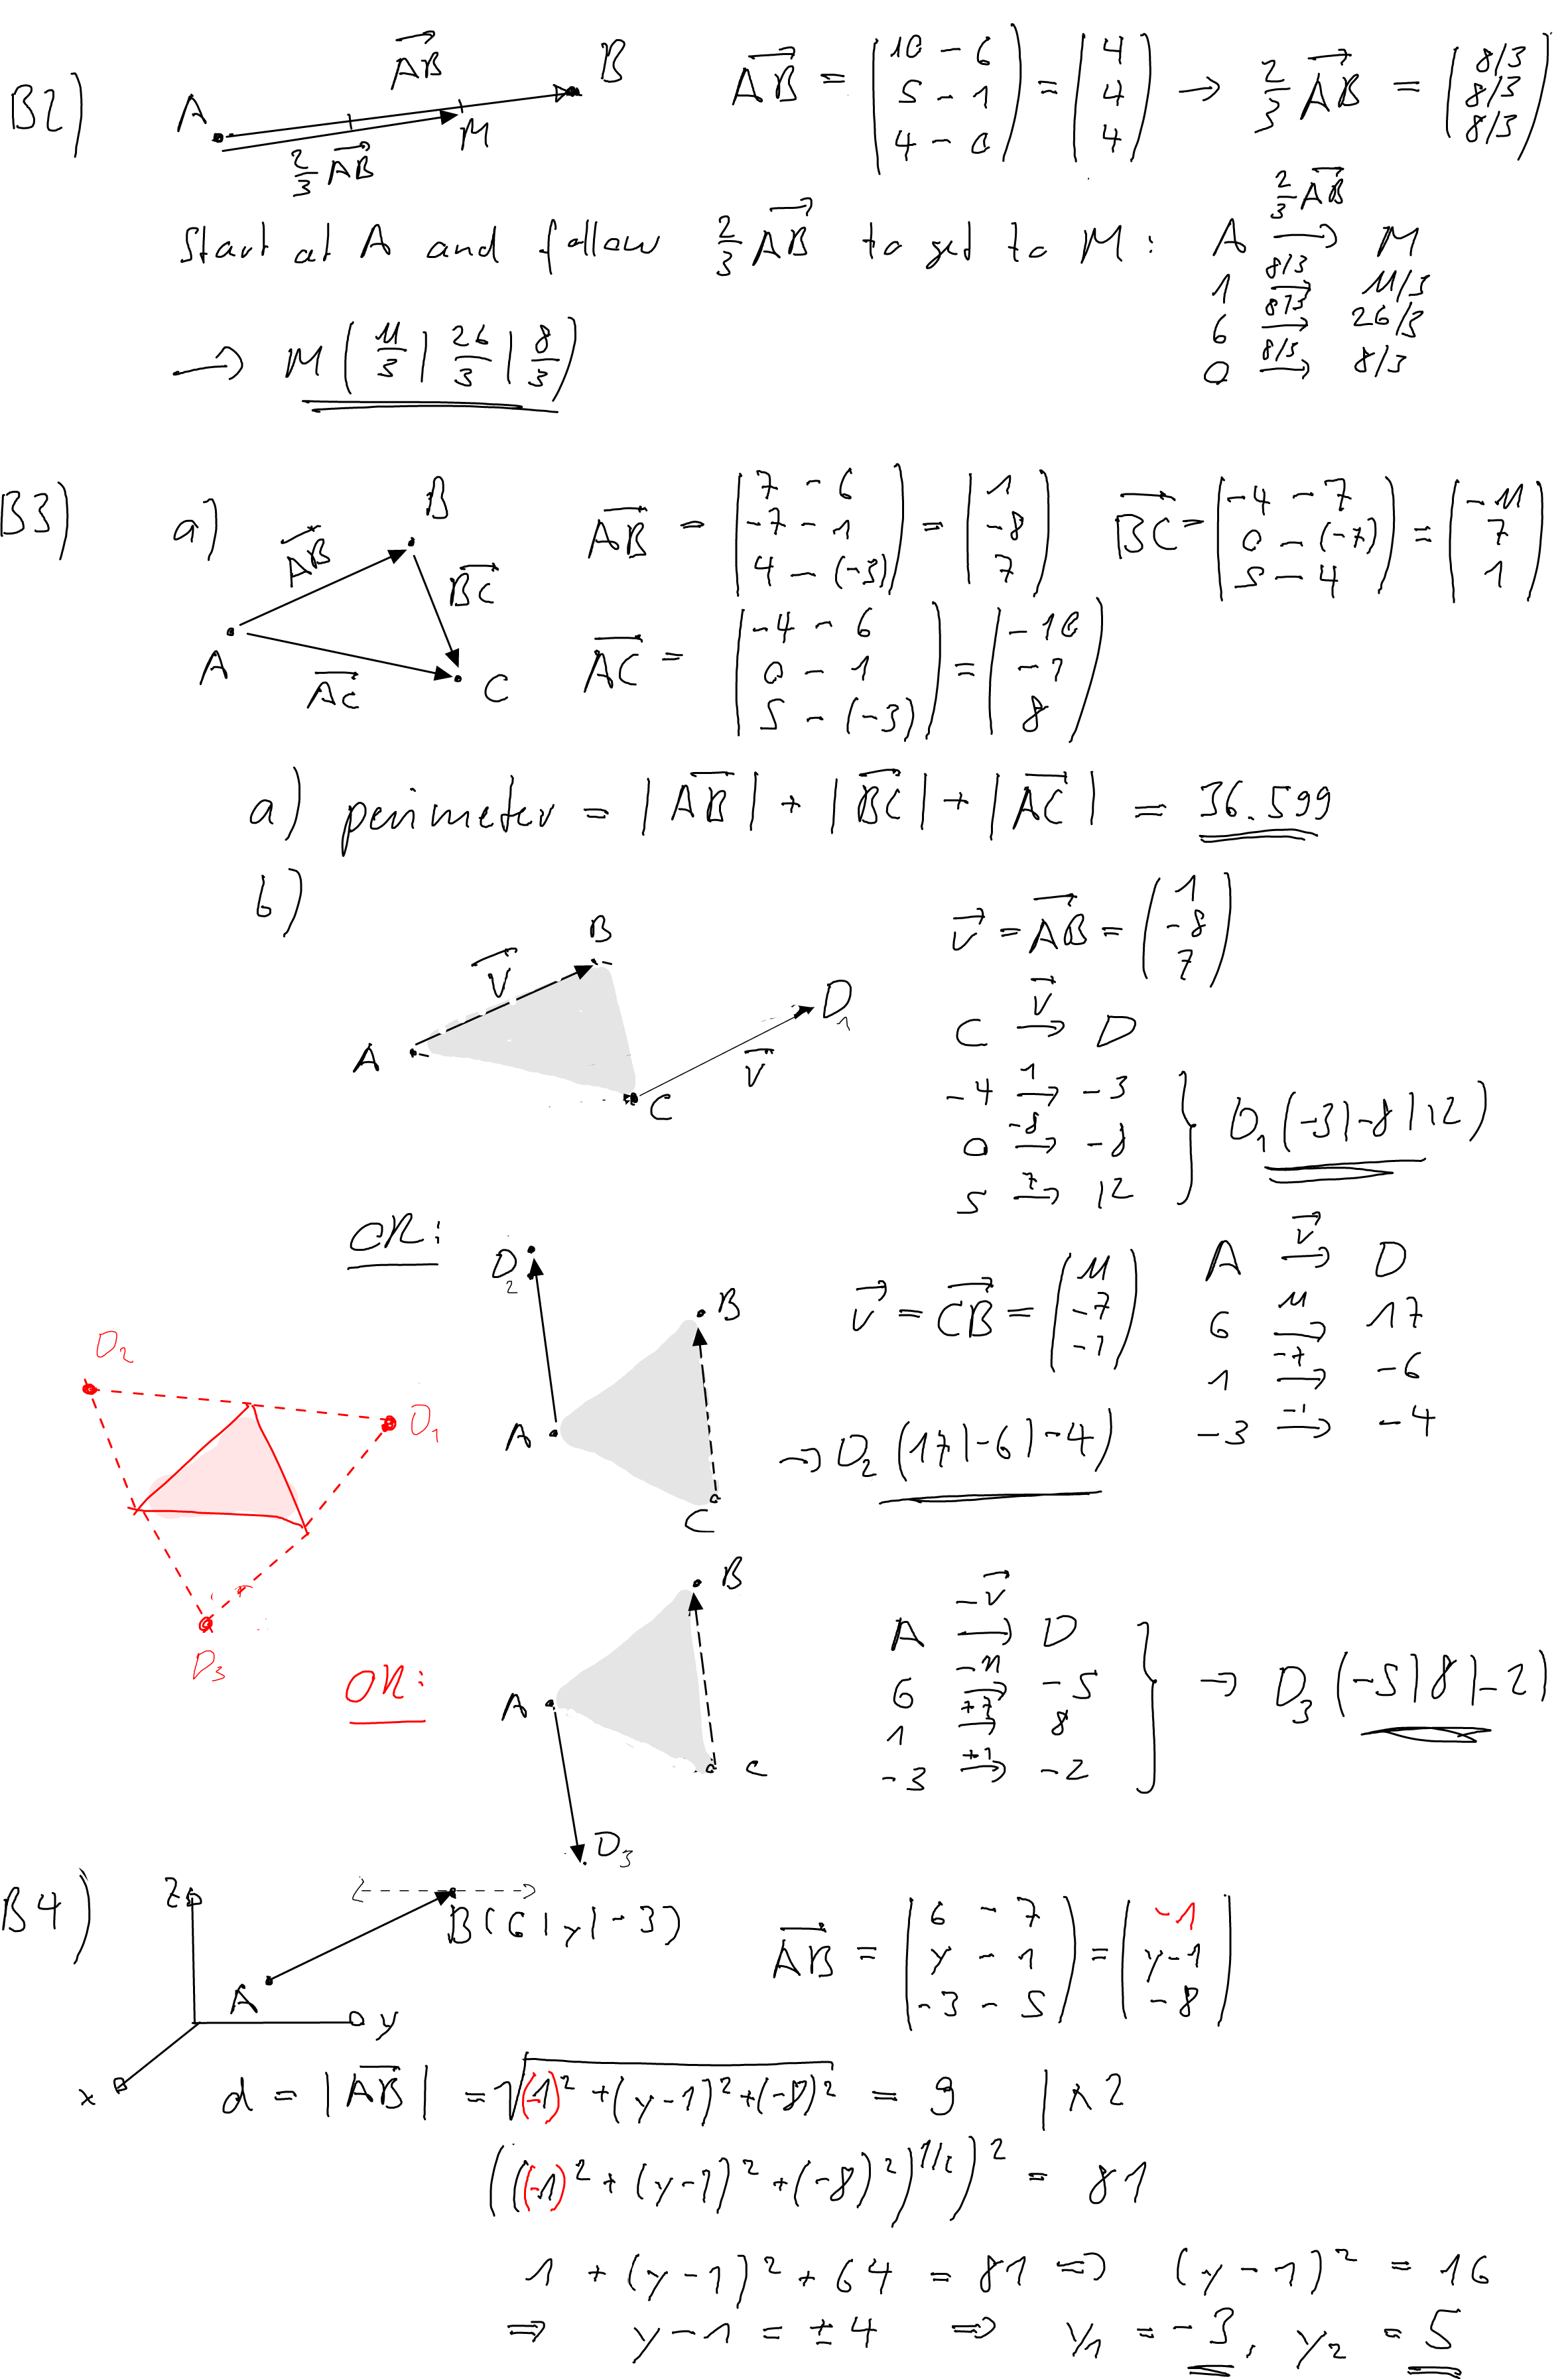 B2)
A
AB
B
M
2/3 AB
AB = (10 - 6, 5 - 1, 4 - 0) = (4, 4, 4) → 2/3 AB = (8/3, 8/3, 8/3)
Start at A and follow 2/3 AB to get to M:
A 2/3 AB → M
1 8/3 → 11/3
6 8/3 → 26/3
0 8/3 → 8/3
→ M (11/3 | 26/3 | 8/3)
B3)
a)
B
AB
BC
A
AC
C
AB = (7 - 6, -7 - 1, 4 - (-3)) = (1, -8, 7)
BC = (-4 - 7, 0 - (-7), 5 - 4) = (-11, 7, 1)
AC = (-4 - 6, 0 - 1, 5 - (-3)) = (-10, -1, 8)
a) perimeter = |AB| + |BC| + |AC| = 36.599
b)
B
v
A
C
D1
v
v = AB = (1, -8, 7)
C v → D
-4 1 → -3
0 -8 → -8
5 7 → 12
D1 (-3|-8|12)
OR:
D2
B
A
C
v = CB = (11, -7, -1)
A v → D
6 11 → 17
1 -7 → -6
-3 -1 → -4
→ D2 (17|-6|-4)
D2
D1
D3
OR:
B
A
C
D3
A -v → D
6 -11 → -5
1 +7 → 8
-3 +1 → -2
→ D3 (-5|8|-2)
B4)
z
y
x
A
B(6|y|-3)
AB = (6 - 7, y - 1, -3 - 5) = (-1, y-1, -8)
d = |AB| = √((-1)² + (y-1)² + (-8)²) = 9 | ∧2
(((-1)² + (y-1)² + (-8)²)^1/2)² = 81
1 + (y-1)² + 64 = 81 ⇒ (y-1)² = 16
⇒ y-1 = ±4 ⇒ y1 = -3, y2 = 5